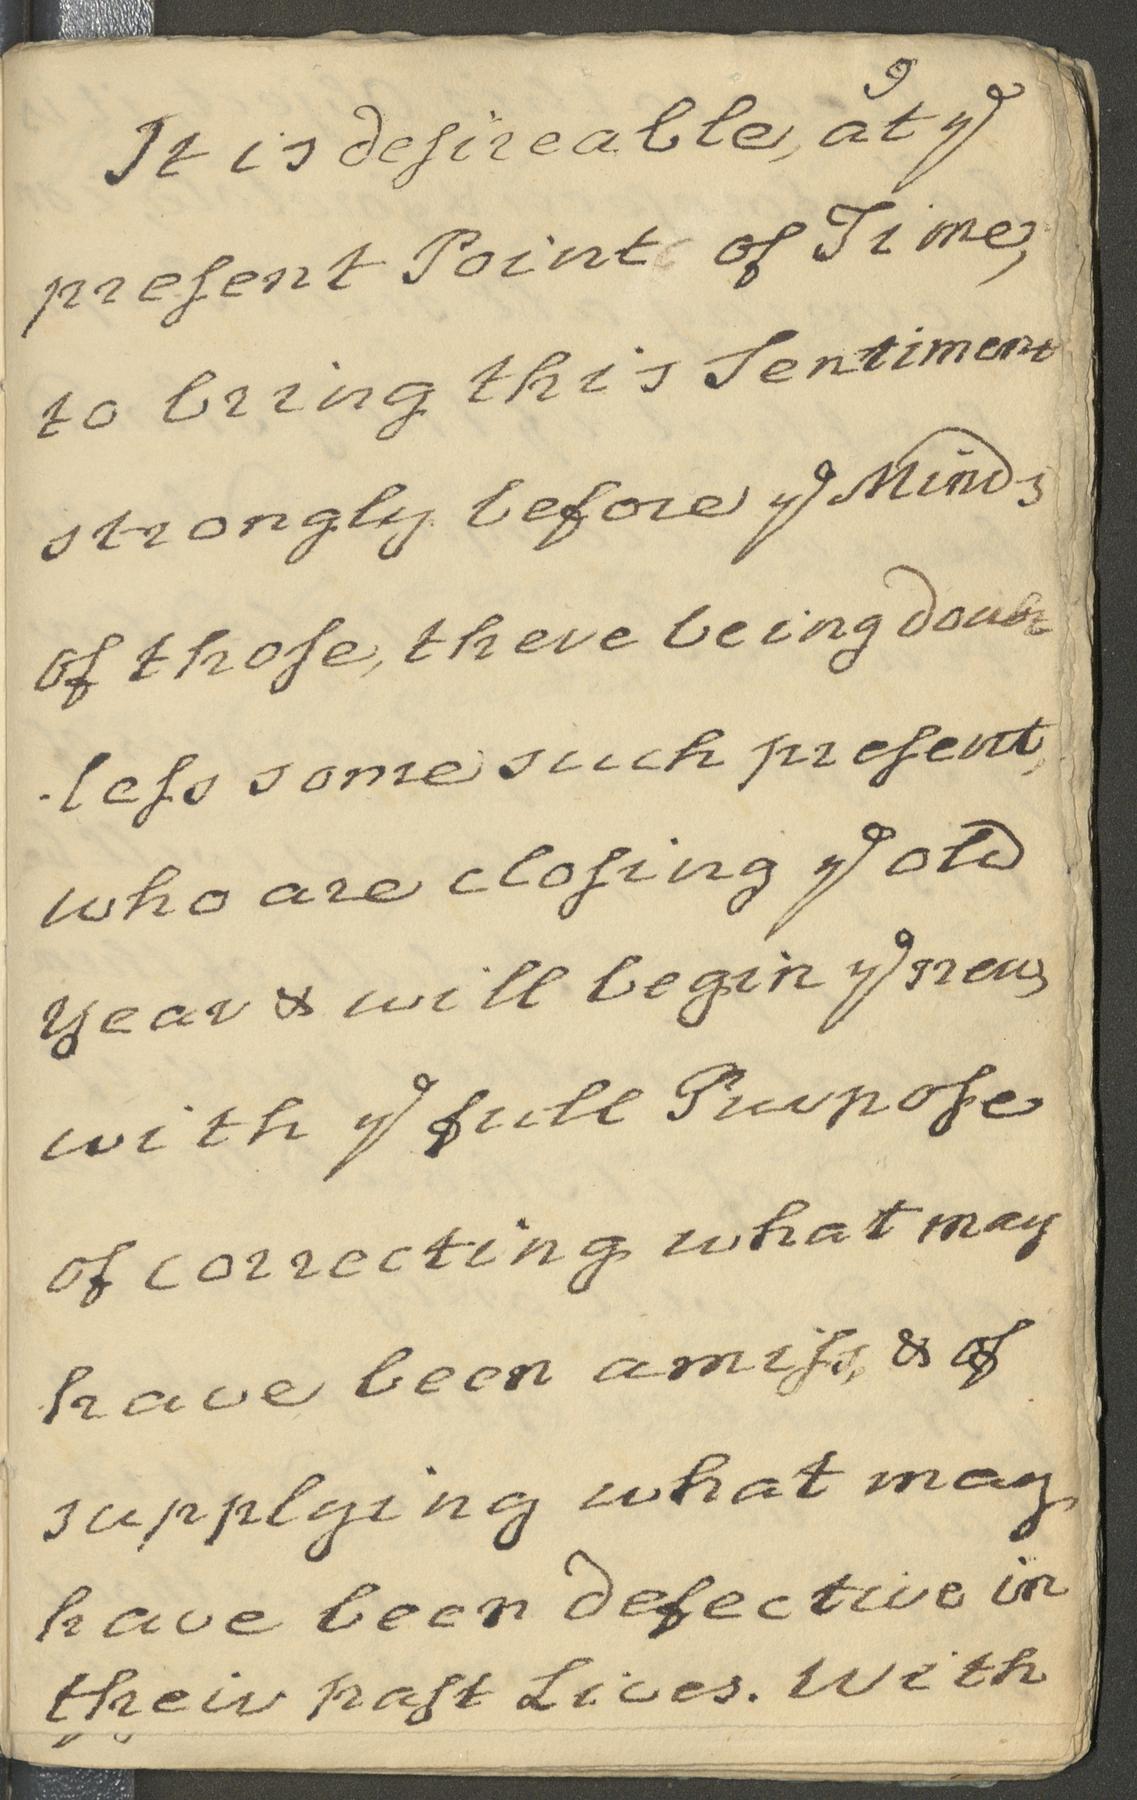 9
It is desireable, at yͤ
present Point of Time,
to bring this Sentiment
strongly before yͤ Minds
of those, there being doubt
-less some such present,
who are closing yͤ old
year & will begin yͤ new,
with yͤ full Purpose
of correcting what may
have been amiss, & of
supplying what may
have been defective in
their past Lives. With